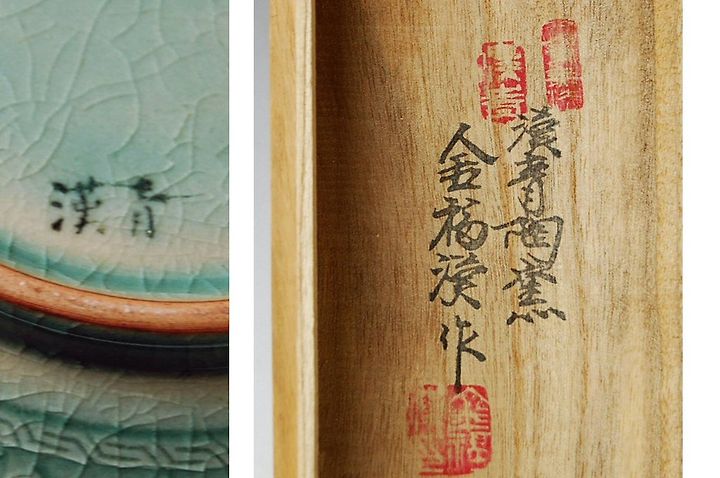 漢青
漢青
漢青陶窯
金福漢作